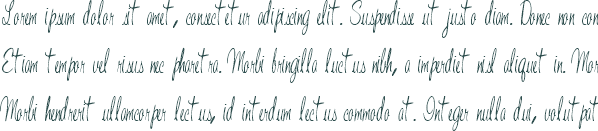 Lorem ipsum dolor sit amet, consectetur adipiscing elit. Suspendisse ut justo diam. Donec non con
Etiam tempor vel risus nec pharetra. Morbi bringilla luctus nibh, a imperdiet nisl aliquet in. Mor
Morbi hendrerit ullamcorper lectus, id interdum lectus commodo at. Integer nulla dui, volutpat